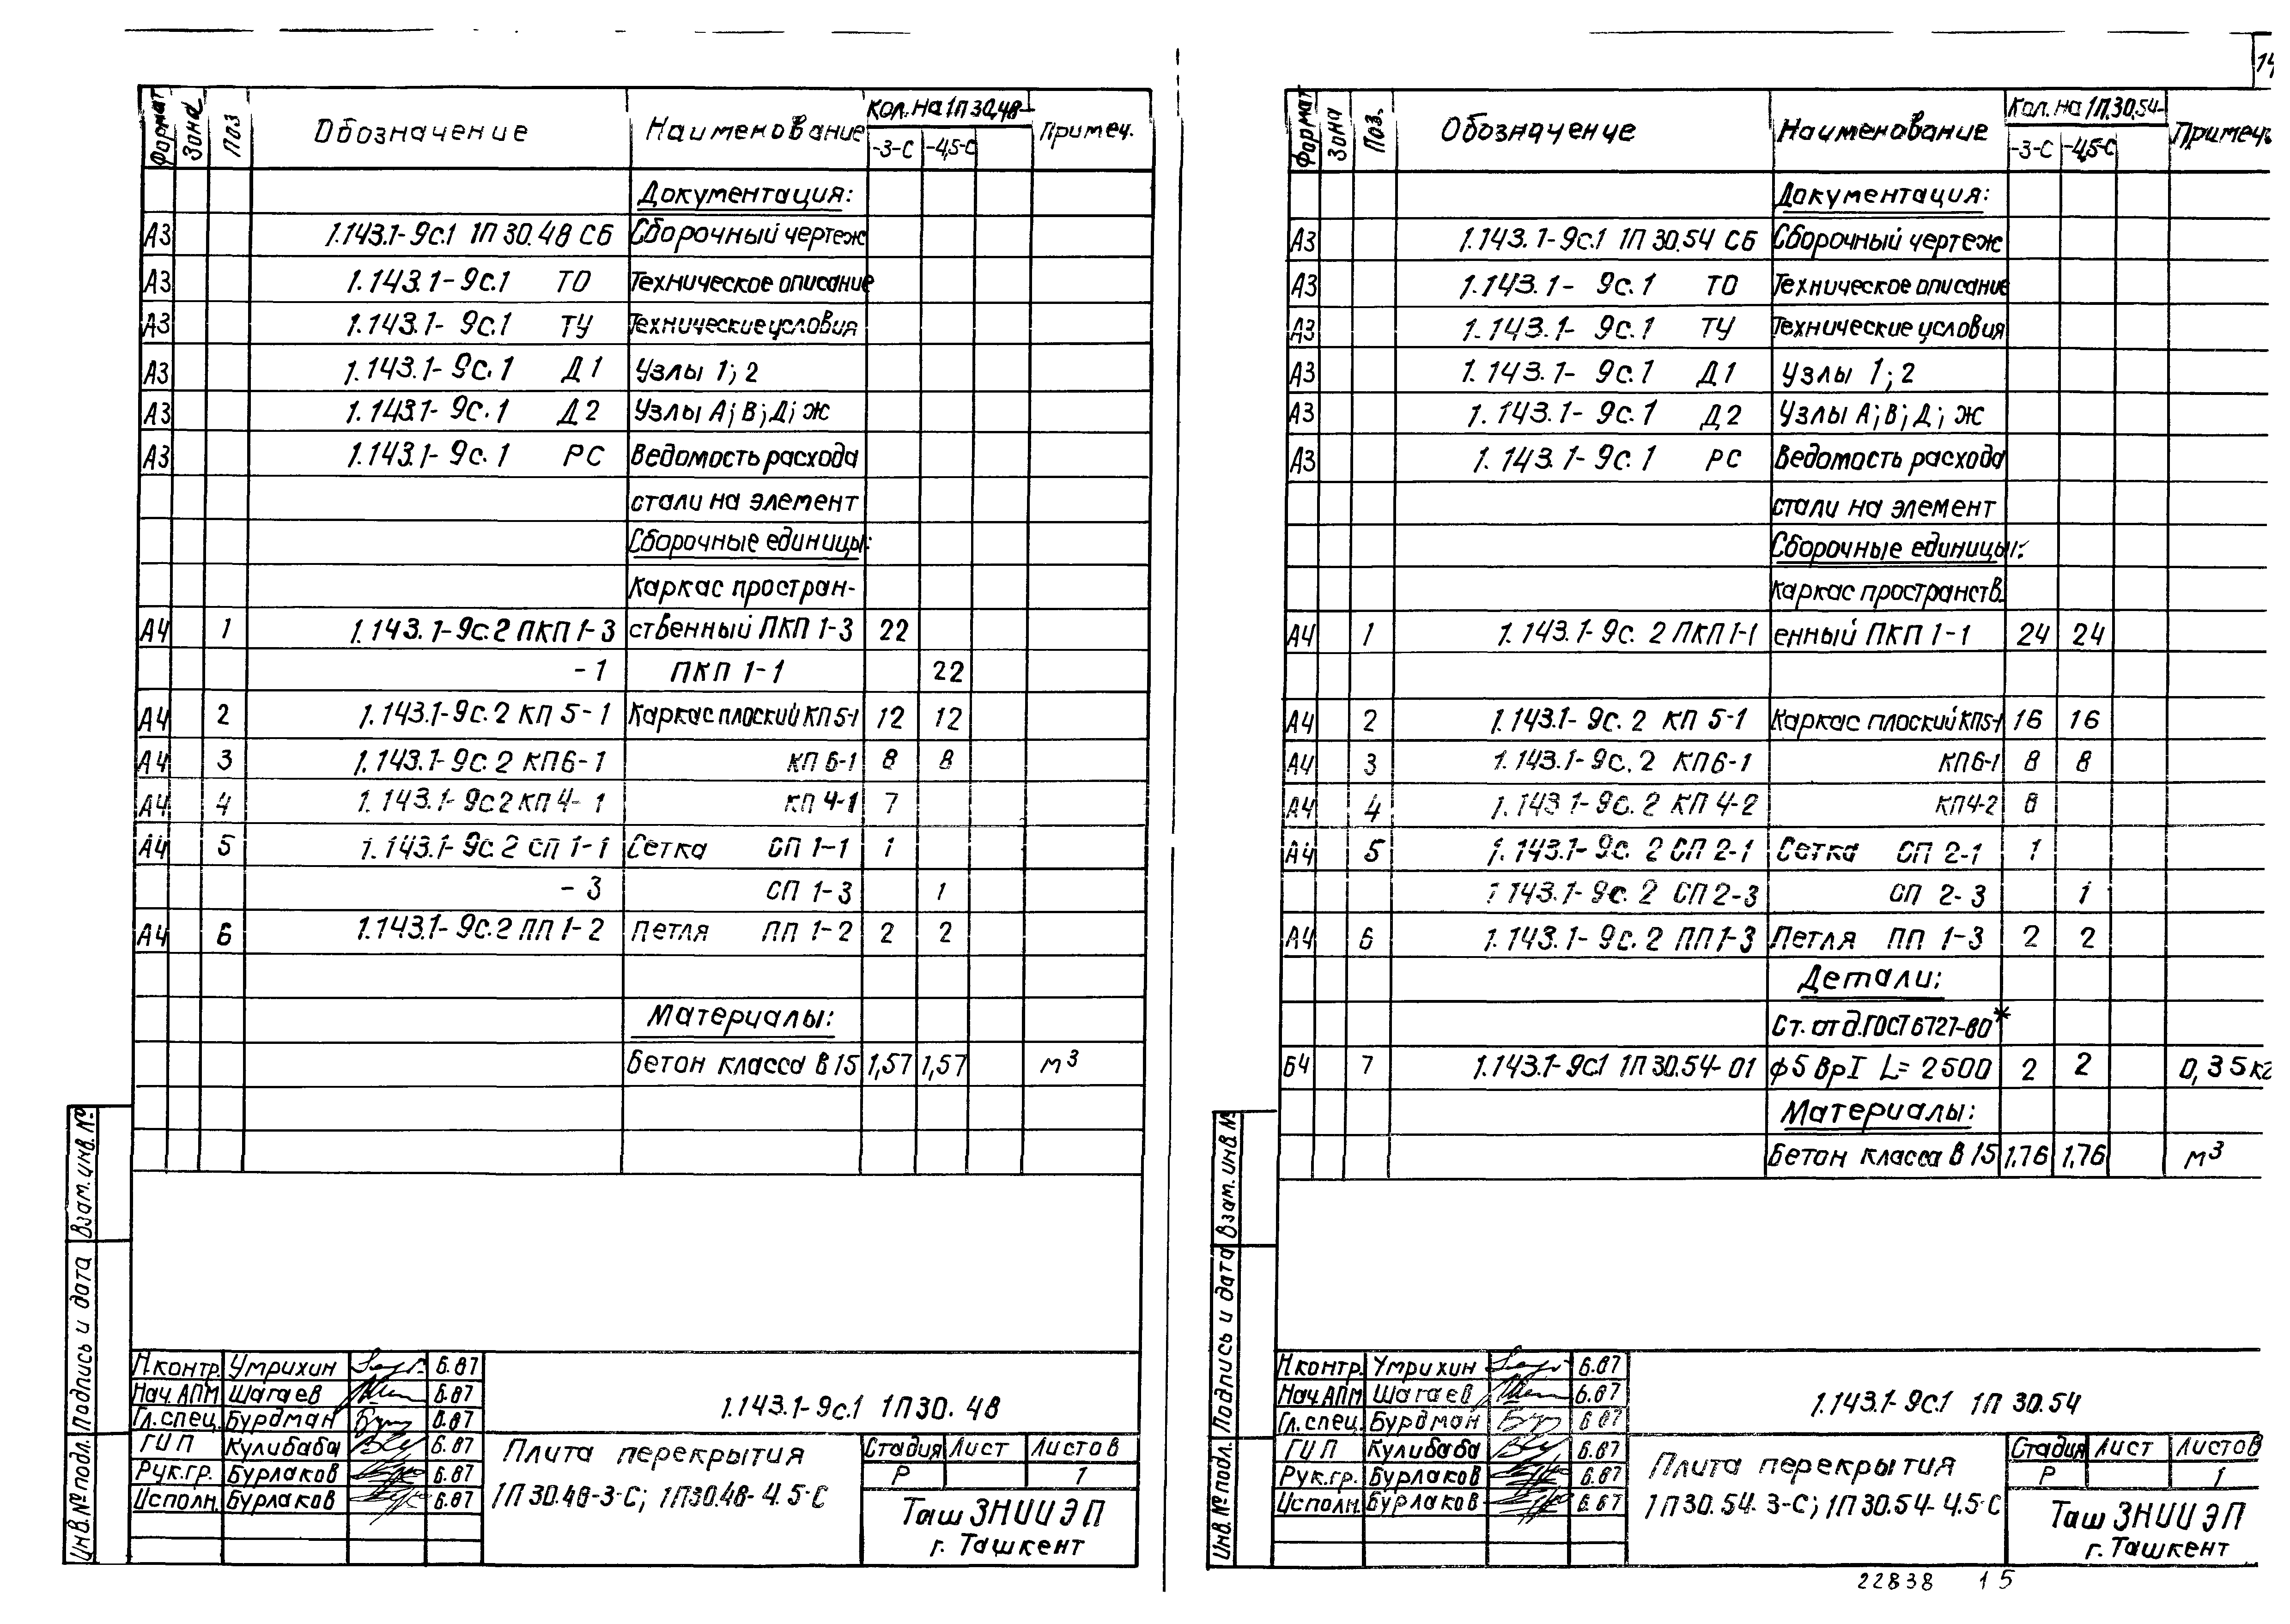 14
Формат Зона Поз Обозначение Наименование Кол. на 1П30.48- Примеч.
-3-С -4,5-С
Документация:
А3 1.143.1-9с.1 1П 30.48 СБ Сборочный чертеж
А3 1.143.1-9с.1 ТО Техническое описание
А3 1.143.1-9с.1 ТУ Технические условия
А3 1.143.1-9с.1 Д1 Узлы 1; 2
А3 1.143.1-9с.1 Д2 Узлы А; В; Д; Ж
А3 1.143.1-9с.1 РС Ведомость расхода
стали на элемент
Сборочные единицы:
Каркас простран-
А4 1 1.143.1-9с.2 ПКП 1-3 ственный ПКП 1-3 22
-1 ПКП 1-1 22
А4 2 1.143.1-9с.2 КП 5-1 Каркас плоский КП 5-1 12 12
А4 3 1.143.1-9с.2 КП6-1 КП 6-1 8 8
А4 4 1.143.1-9с2 КП 4-1 КП 4-1 7
А4 5 1.143.1-9с.2 СП 1-1 Сетка СП 1-1 1
-3 СП 1-3 1
А4 6 1.143.1-9с.2 ПП 1-2 Петля ПП 1-2 2 2
Материалы:
Бетон класса В 15 1,57 1,57 м³
Взам. инв. №
Подпись и дата
Инв. № подл.
Н.контр. Умрихин 6.87
Нач. АПМ Шагаев 6.87
Гл. спец. Бурдман 6.87
ГИП Кулибаба 6.87
Рук.гр. Бурлаков 6.87
Исполн. Бурлаков 6.87
1.143.1-9с.1 1П30.48
Плита перекрытия
1П 30.48-3-С; 1П30.48-4.5-С
Стадия Лист Листов
Р 1
Таш ЗНИИЭП
г. Ташкент
Формат Зона Поз. Обозначение Наименование Кол. на 1П.30.54- Примеч.
-3-С -4,5-С
Документация:
А3 1.143.1-9с.1 1П 30.54 СБ Сборочный чертеж
А3 1.143.1-9с.1 ТО Техническое описание
А3 1.143.1-9с.1 ТУ Технические условия
А3 1.143.1-9с.1 Д1 Узлы 1; 2
А3 1.143.1-9с.1 Д2 Узлы А; В; Д; Ж
А3 1.143.1-9с.1 РС Ведомость расхода
стали на элемент
Сборочные единицы:
Каркас пространств-
А4 1 1.143.1-9с.2 ПКП 1-1 енный ПКП 1-1 24 24
А4 2 1.143.1-9с.2 КП 5-1 Каркас плоский КП5-1 16 16
А4 3 1.143.1-9с.2 КП6-1 КП6-1 8 8
А4 4 1.143 1-9с.2 КП 4-2 КП4-2 8
А4 5 1.143.1-9с.2 СП 2-1 Сетка СП 2-1 1
1.143.1-9с.2 СП 2-3 СП 2-3 1
А4 6 1.143.1-9с.2 ПП1-3 Петля ПП 1-3 2 2
Детали:
Ст. отд. ГОСТ 6727-80*
Б4 7 1.143.1-9с1 1П 30.54-01 ф5 ВрI L= 2500 2 2 0,35кг
Материалы:
Бетон класса В 15 1,76 1,76 м³
Взам. инв. №
Подпись и дата
Инв. № подл.
Н контр. Умрихин 6.87
Нач. АПМ Шагаев 6.87
Гл. спец. Бурдман 6.87
ГИП Кулибаба 6.87
Рук.гр. Бурлаков 6.87
Исполн. Бурлаков 6.87
1.143.1-9с.1 1П 30.54
Плита перекрытия
1П 30.54-3-С; 1П30.54-4.5-С
Стадия Лист Листов
Р 1
Таш ЗНИИЭП
г. Ташкент
22838 15